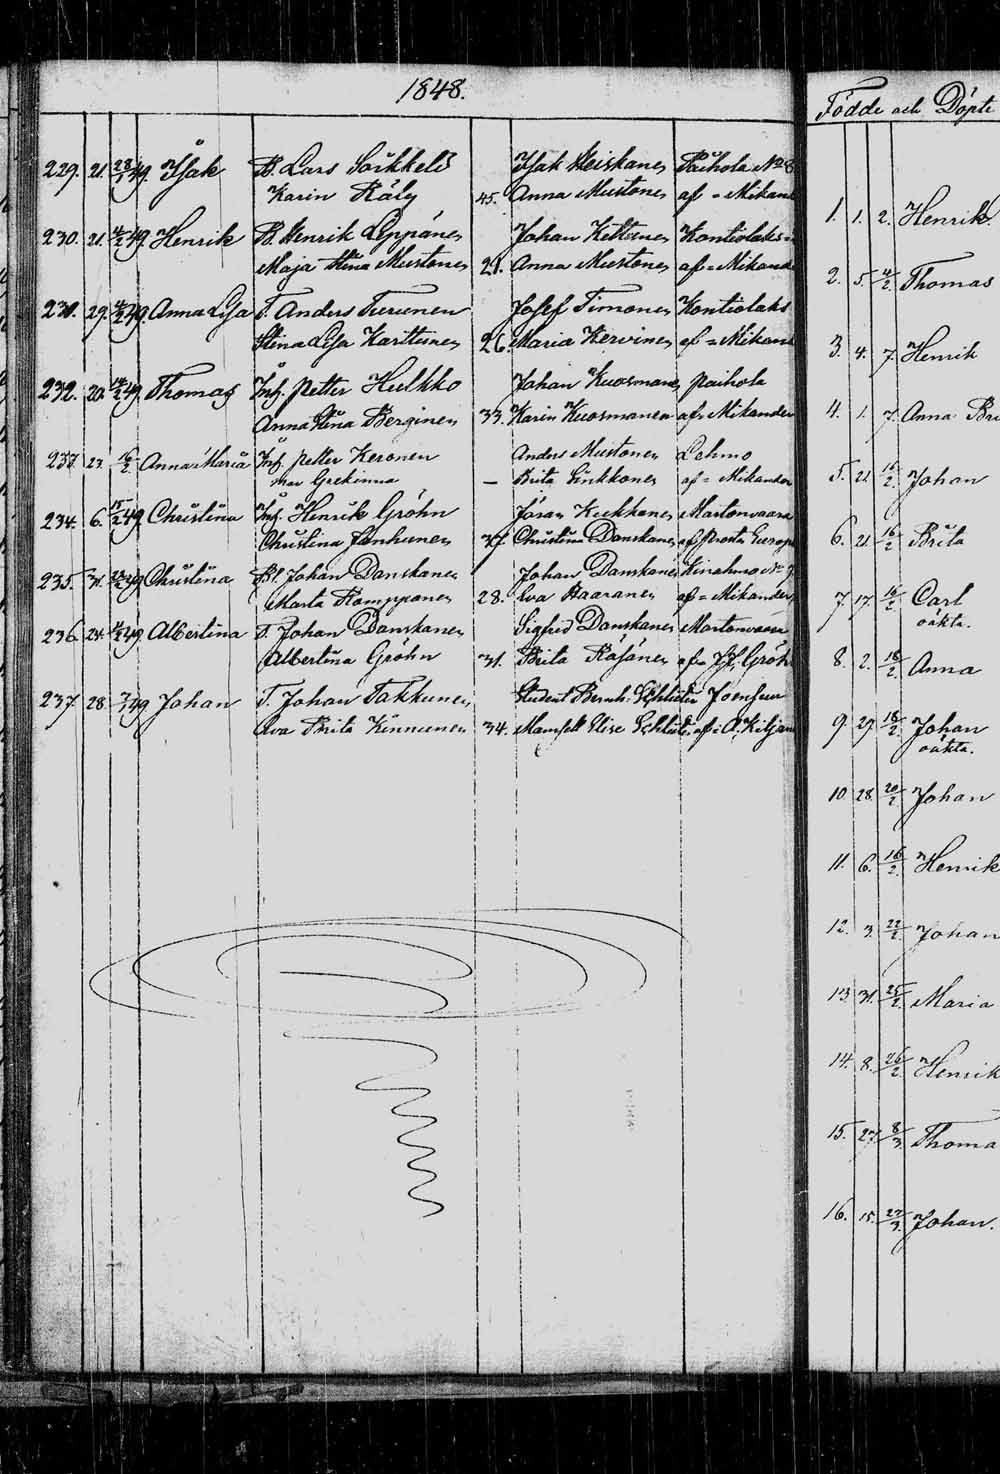 1848.
229. 21. 28/1 49. Isak B. Lars Sorkkeld Isak Heiskanen Paihola No 8
Karin Räty 45. Anna Mustonen af = Mikand
230. 21. 4/2 49. Henrik B. Henrik Leppänen Johan Kettunen Kontiolaks
Maja Stina Mustonen 21. Anna Mustonen af = Mikande
231. 29. 4/2 49. Anna Lisa T. Anders Turunen Josef Timonen Kontiolaks
Stina Lisa Karttunen 26. Maria Kervinen af = Mikand
232. 20. 14/2 49. Thomas Inh. Petter Hulkko Johan Kuosmanen Paihola
Anna Stina Berginen 33. Karin Kuosmanen af = Mikander
237. 23. 16/2 Anna Maria Inh. Petter Keronen Anders Mustonen Lehmo
mor Grekinna — Brita Sinkkonen af = Mikander
234. 6. 15/2 49 Christina Inh. Henrik Gröhn Jöran Kukkonen Martonvaara
Christina Janhunen 37. Christina Danskanen af Prosta Europ
235. 31. 22/2 49 Christina Bl. Johan Danskanen Johan Danskanen
Marta Romppanen 28. Eva Haaranen af = Mikander
236. 24. 4/2 49 Albertina T. Johan Danskanen Sigfred Danskanen Martonvaara
Albertina Gröhn 31. Brita Räsänen af = Gröh
237. 28. 7/1 49 Johan T. Johan Takkunen Student Bernh. Schlüter Joensuu
Eva Brita Kinnunen 34. Mamsell Elise Schlüter af = A. Kiljan
Födde och Döpte
1. 1. 2. Henrik
2. 5. 4/2. Thomas
3. 4. 7. Henrik
4. 1. 7. Anna Bri
5. 21 16/2. Johan
6. 21 16/2. Brita
7. 17. 16/2. Carl
oäkta.
8. 2. 18/2. Anna
9. 29. 18/2. Johan
oäkta.
10. 28. 20/2. Johan
11. 6. 16/2. Henrik
12. 3. 22/2. Johan
13 31. 25/2. Maria
14. 8. 26/2. Henrik
15. 27. 8/3. Thoma
16. 15. 22/3. Johan.